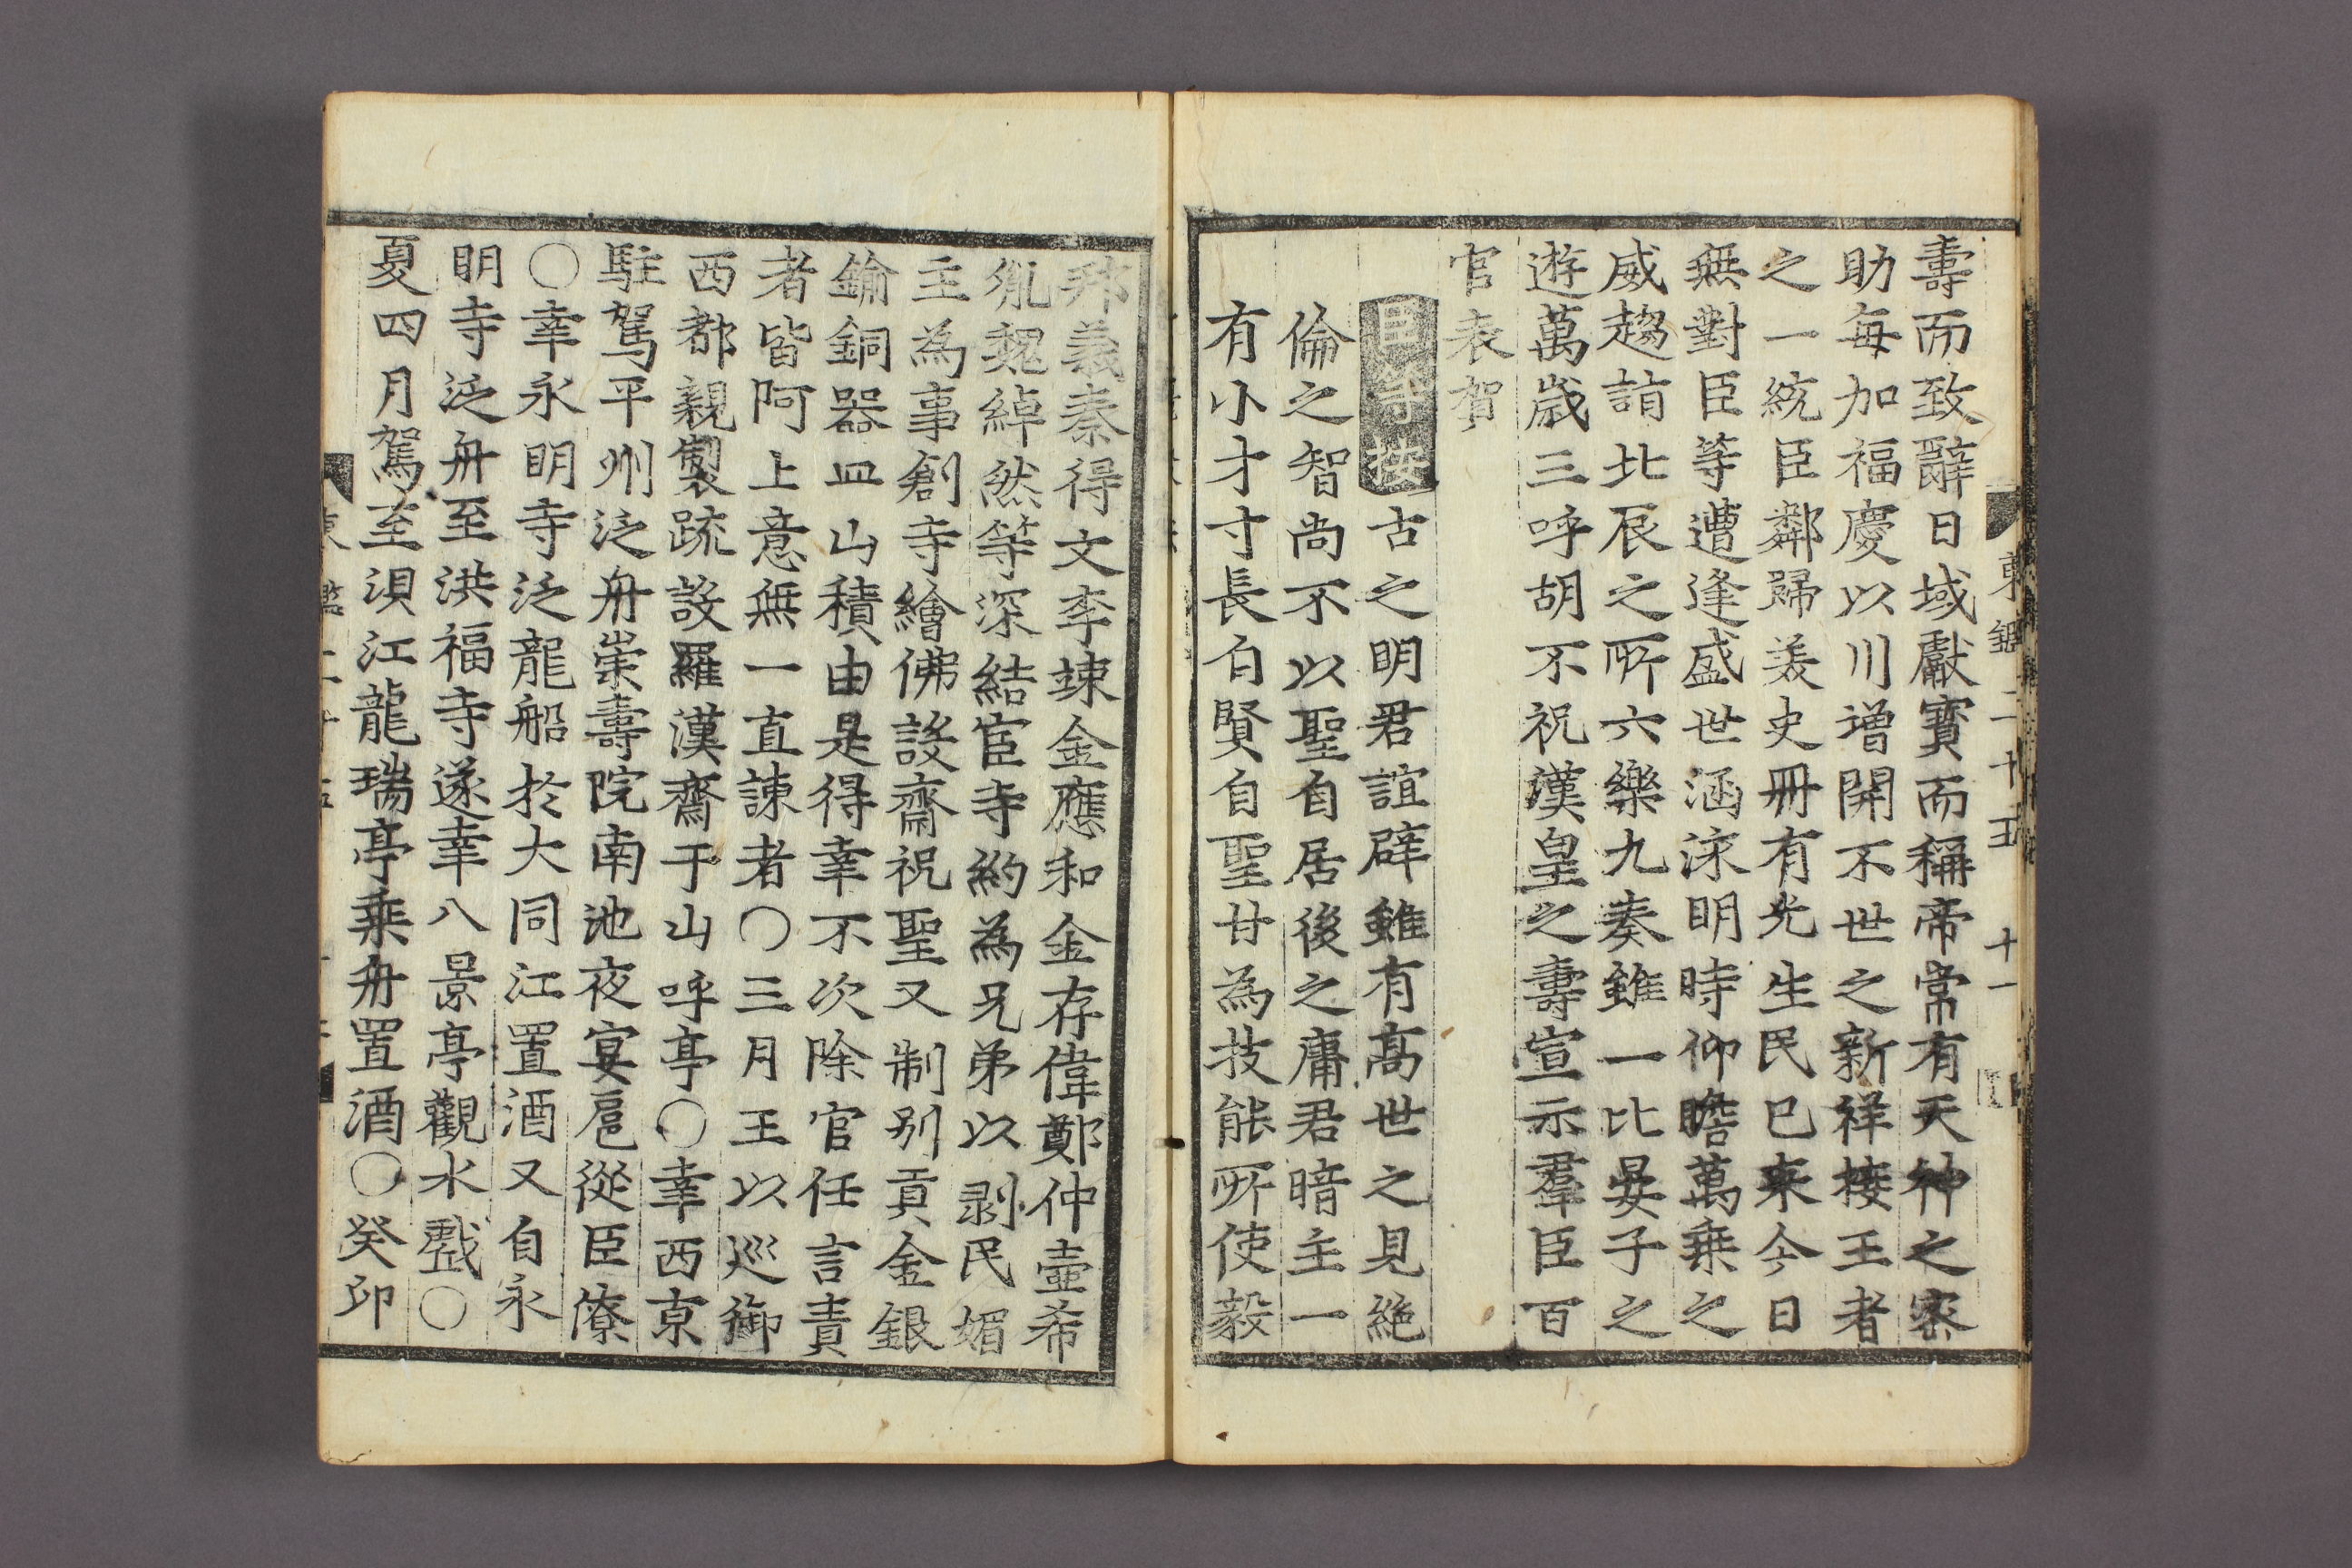 壽而致辭日域獻寶而稱帝常有天神之密
助每加福慶以川增開不世之新祥接王者
之一統臣鄰歸美史冊有光生民已來今日
無對臣等遭逢盛世涵泳明時仰瞻萬乘之
威趨詣北辰之所六樂九奏雖一比晏子之
遊萬歲三呼胡不祝漢皇之壽宣示羣臣百
官表賀
臣等按古之明君誼辟雖有高世之見絶
倫之智尚不以聖自居後之庸君暗主一
有小才寸長自賢自聖甘為技能所使毅
東鑑二十五
十一
邦義秦得文李竦金應和金存偉鄭仲壺希
胤魏綽然等深結宦寺約為兄弟以剥民媚
主為事創寺繪佛設齋祝聖又制别貢金銀
鍮銅器皿山積由是得幸不次除官任言責
者皆阿上意無一直諫者○三月王以巡御
西都親製疏設羅漢齋于山呼亭○幸西京
駐駕平州泛舟崇壽院南池夜宴扈從臣僚
○幸永明寺泛龍船於大同江置酒又自永
明寺泛舟至洪福寺遂幸八景亭觀水戲○
夏四月駕至浿江龍瑞亭乘舟置酒○癸卯